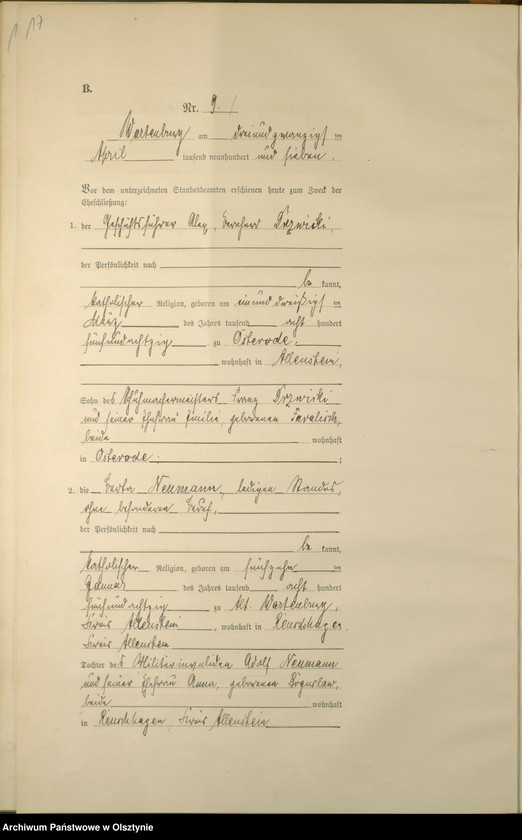 17
B.
Nr. 9.
Wartenburg am dreiundzwanzigsten
April tausend neunhundert und sieben.
Vor dem unterzeichneten Standesbeamten erschienen heute zum Zweck der
Eheschließung:
1. der Geschäftsführer Bernhard
der Persönlichkeit nach
be kannt,
katholischer Religion, geboren am einunddreißigsten
März des Jahres tausend acht hundert
fünfundachtzig zu Osterode,
wohnhaft in Allenstein,
Sohn des Schuhmachermeisters Franz
und seiner Ehefrau Emilie, geborenen
beide wohnhaft
in Osterode. ;
2. die Berta Neumann, ledigen Standes,
ohne besonderen Beruf,
der Persönlichkeit nach
be kannt,
katholischer Religion, geboren am fünfzehnten
Januar des Jahres tausend acht hundert
fünfundachtzig zu Alt Wartenburg,
Kreis Allenstein, wohnhaft in Reuschhagen
Kreis Allenstein
Tochter des Militärinvaliden Adolf Neumann
und seiner Ehefrau Anna, geborenen Boguslaw,
beide wohnhaft
in Reuschhagen, Kreis Allenstein
Archiwum Państwowe w Olsztynie